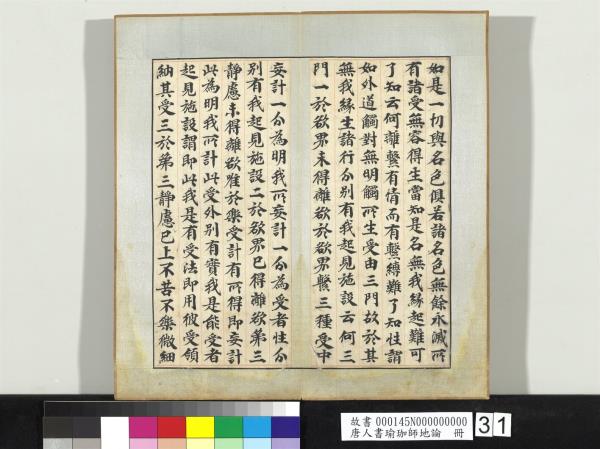 如是一切與名色俱若諸名色無餘永滅所
有諸受無容得生當知是名無我緣起難可
了知云何離繫有情而有繫縛難了知性謂
如外道觸對無明觸所生受由三門故於其
無我緣生諸行分別有我起見施設云何三
門一於欲界未得離欲於欲界繫三種受中
妄計一分為明我所妄計一分為受者性分
別有我起見施設二於欲界已得離欲第三
靜慮未得離欲唯於樂受計有所得即妄計
此為明我所計此受外別有實我是能受者
起見施設謂即此我是有受法即用彼受領
納其受三於第三靜慮已上不苦不樂微細
故書 000145N000000000
唐人書瑜珈師地論 冊
31